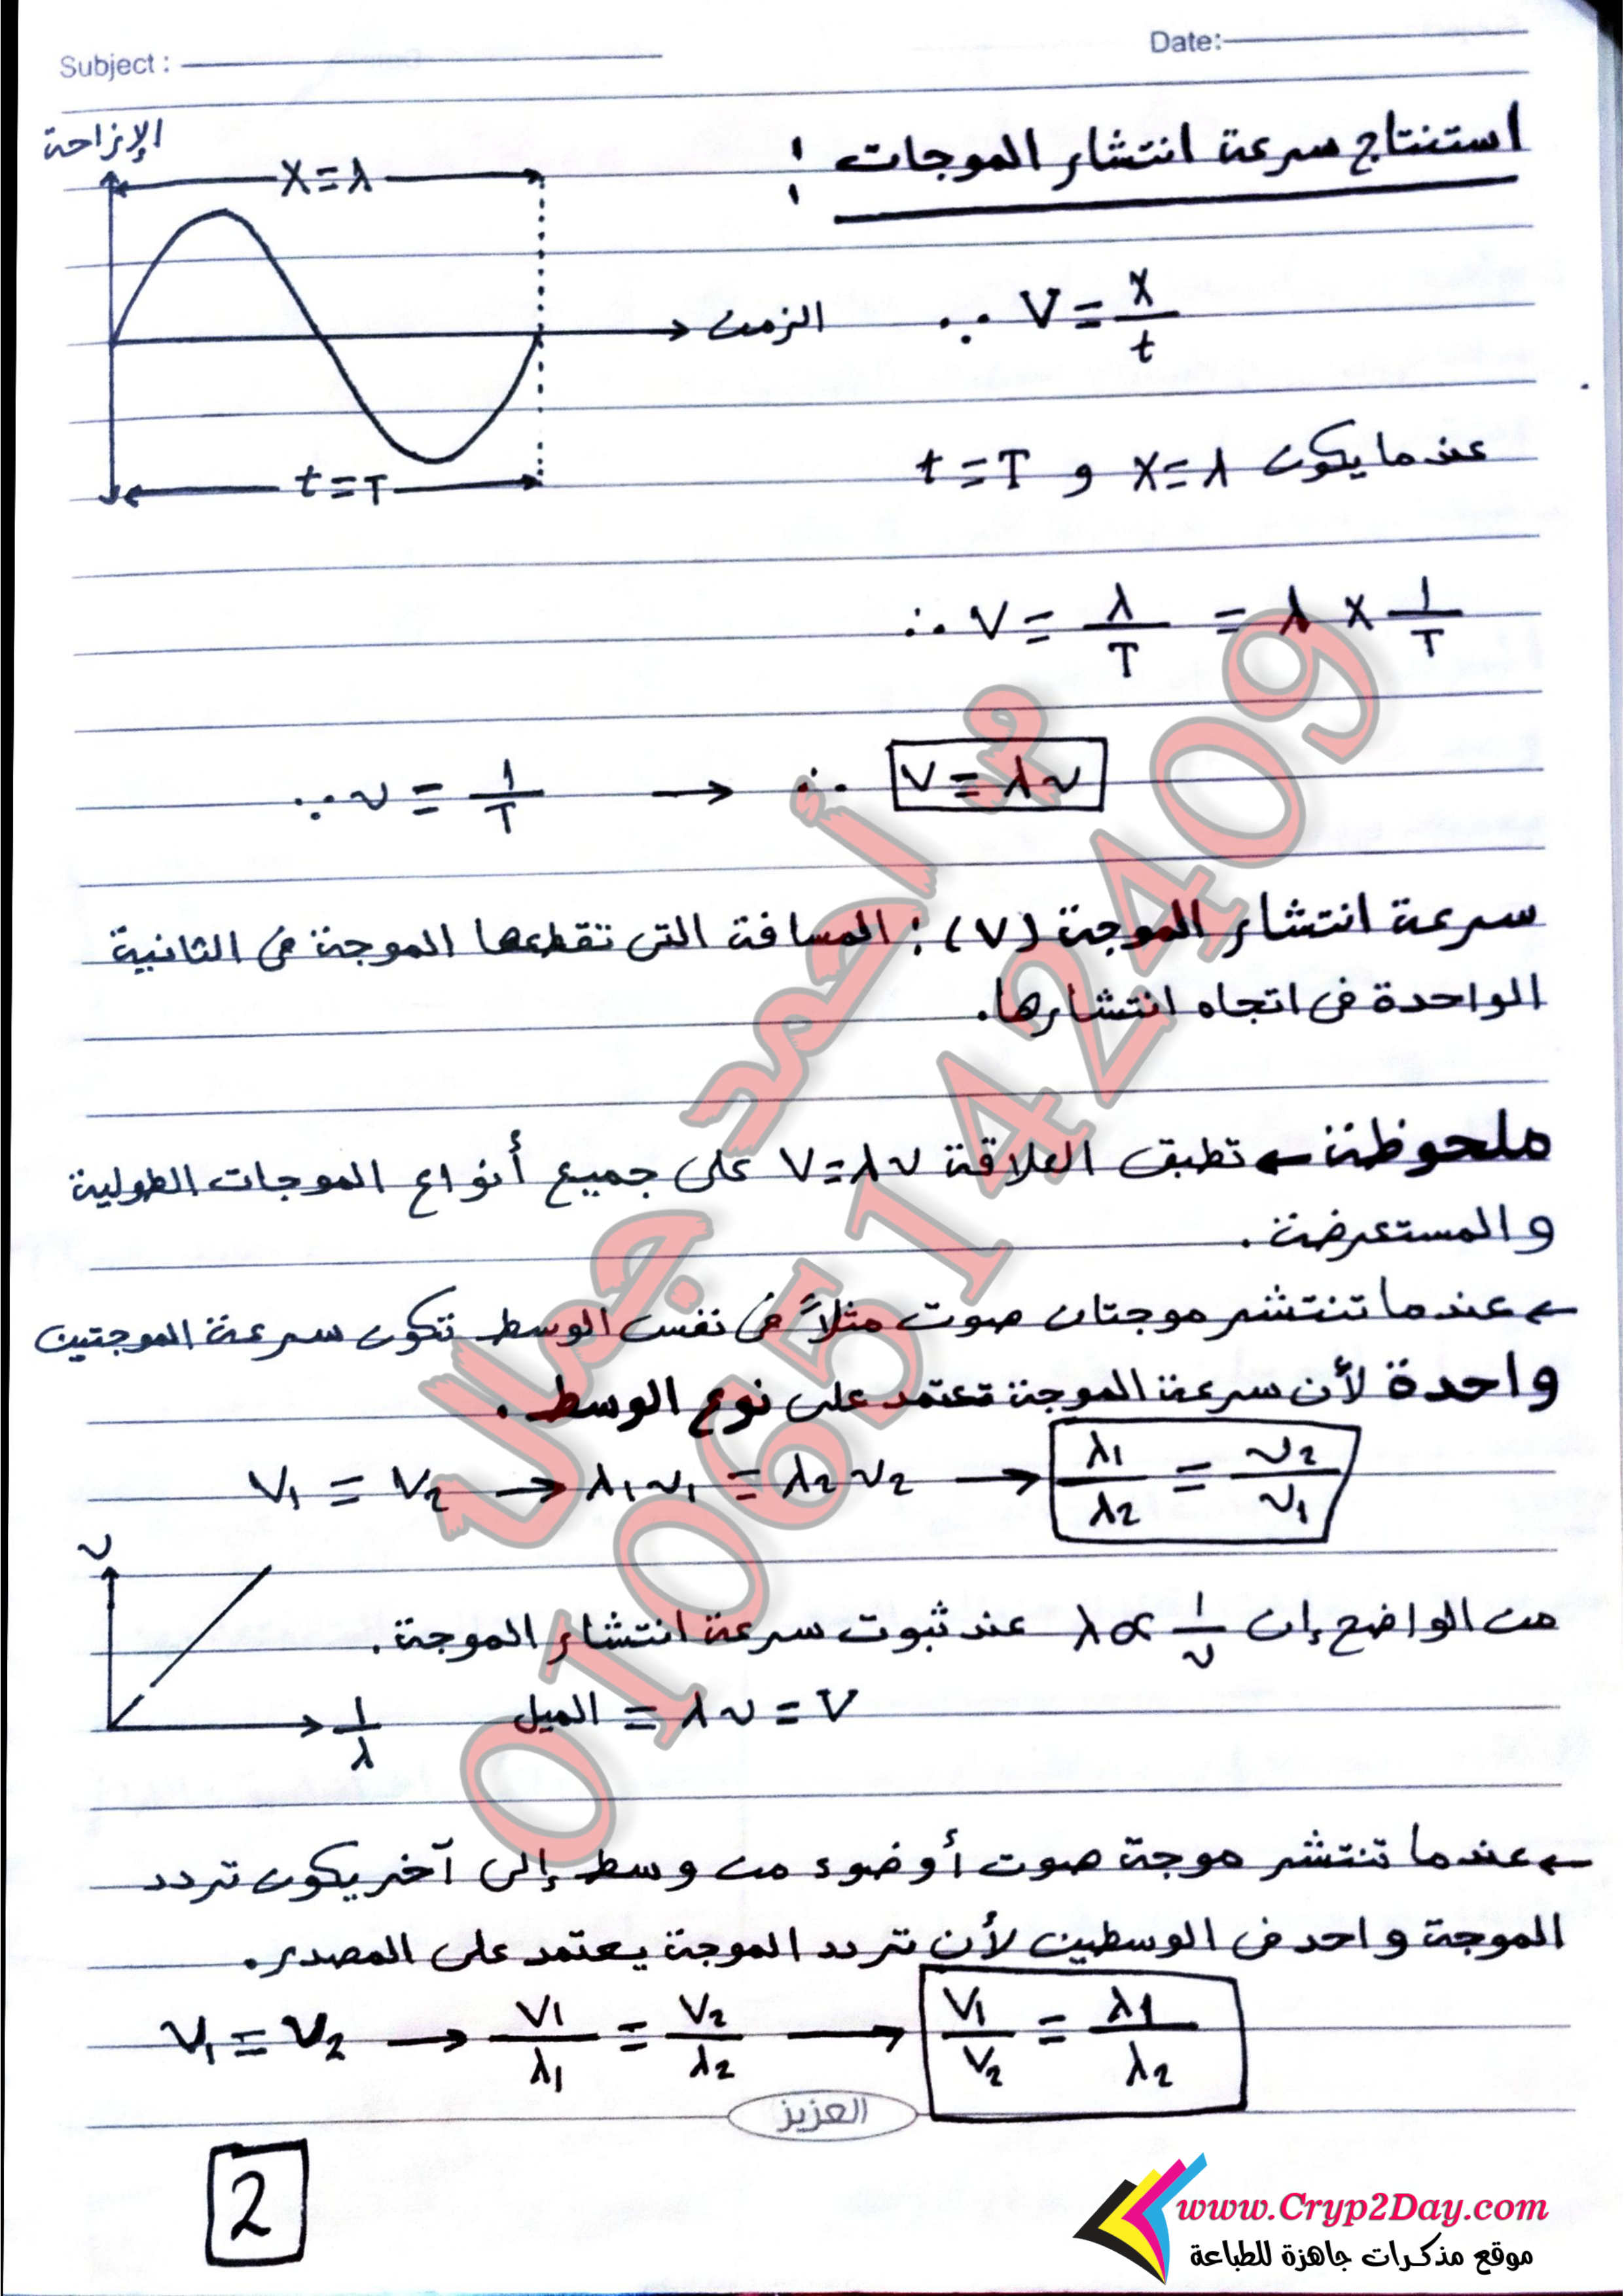 Subject :
Date:
استنتاج سرعة انتشار الموجات :
الإزاحة
X = λ
الزمن
t = T
∵ V = X/t
عندما يكون X = λ و t = T
∴ V = λ/T = λ × 1/T
∵ ν = 1/T → ∴ V = λν
سرعة انتشار الموجة (V) : المسافة التى تقطعها الموجة فى الثانية
الواحدة فى اتجاه انتشارها.
ملحوظة ← تطبق العلاقة V = λν على جميع أنواع الموجات الطولية
والمستعرضة.
← عندما تنتشر موجتان صوت مثلاً فى نفس الوسط تكون سرعة الموجتين
واحدة لأن سرعة الموجة تعتمد على نوع الوسط.
V₁ = V₂ → λ₁ν₁ = λ₂ν₂ → λ₁/λ₂ = ν₂/ν₁
ν
1/λ
من الواضح إن λ ∝ 1/ν عند ثبوت سرعة انتشار الموجة.
الميل = λν = V
← عندما تنتشر موجة صوت أو ضوء من وسط إلى آخر يكون تردد
الموجة واحد فى الوسطين لأن تردد الموجة يعتمد على المصدر.
ν₁ = ν₂ → V₁/λ₁ = V₂/λ₂ → V₁/V₂ = λ₁/λ₂
العزيز
2
م أحمد جمال
01065142409
www.Cryp2Day.com
موقع مذكرات جاهزة للطباعة